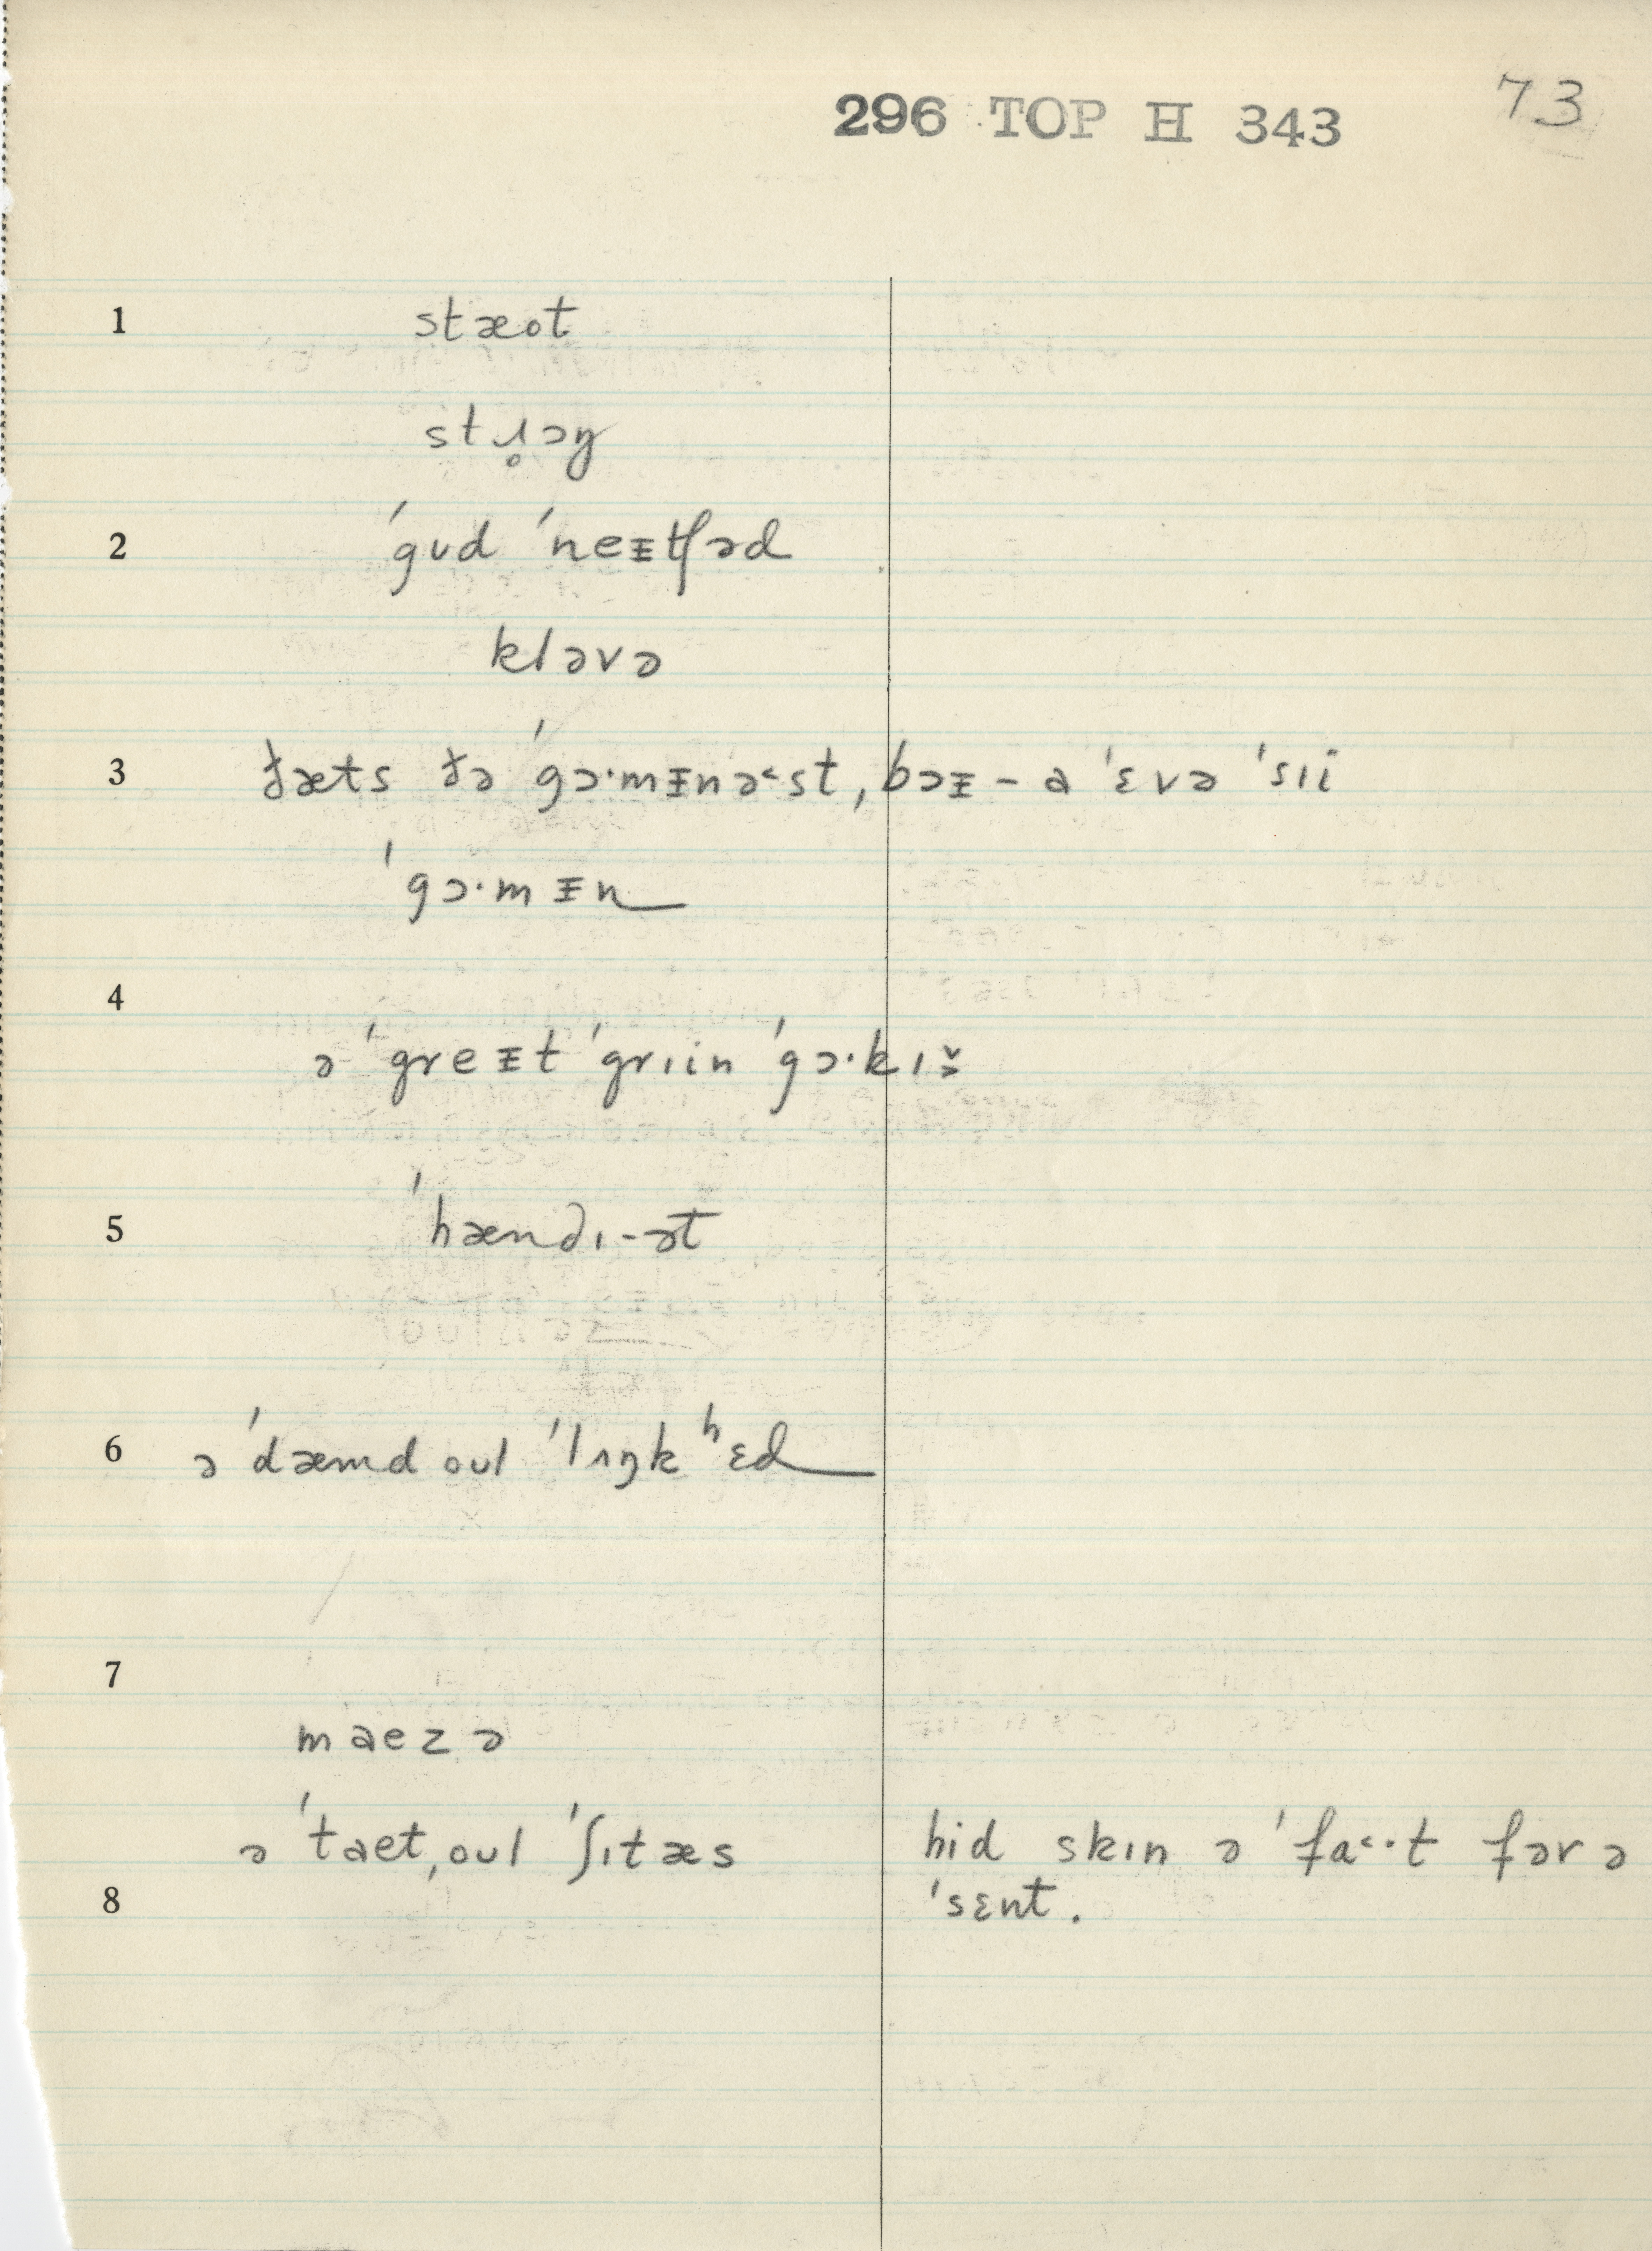 296 TOP H 343 73
1 stæot
stɹ̥ɔŋ
2 ˈgʊd ˈneᵻtʃəd
kləvə
3 ðæts ðə ˈgɔ·mᵻnə˂st, bɔᵻ – a ˈɛvə ˈsɪi
ˈgɔ·mᵻn
4
ə ˈgreᵻt ˈgrɪin ˈgɔ·kɪš̬
5 ˈhændɪ-ət
6 ə ˈdæmd oʊl ˈlɪŋkʰɛd
7
maezə
ə ˈtaet, oʊl ˈʃɪtæs hid skɪn ə ˈfa˂·t fər ə
8 ˈsɛnt.